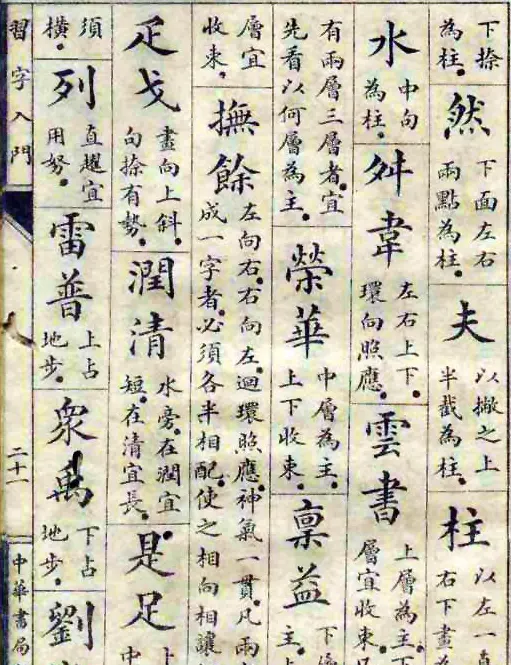 下捺
為柱。
然
下面左右
兩點為柱。
夫
以撇之上
半截為柱。
柱
以左一直
右下畫
水
中句
為柱。
舛韋
左右上下。
環向照應。
雲書
上層為主。下
層宜收束。
有兩層三層者。宜
先看以何層為主。
榮華
中層為主。
上下收束。
稟益
下
主。上
層宜
收束。
撫餘
左向右。右向左。迴環照應。神氣一貫。凡兩
成一字者。必須各半相配。使之相向相讓
疋戈
畫向上斜。
句捺有勢。
潤清
水旁。在潤宜
短。在清宜長。
是足
上
中
須
橫。
列
直趯宜
用努。
雷普
上占
地步。
眾禹
下占
地步。
劉
習字入門
二十一
中華書局